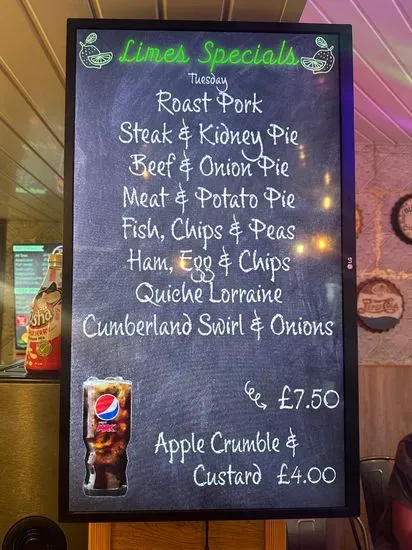 Limes Specials
Tuesday
Roast Pork
Steak & Kidney Pie
Beef & Onion Pie
Meat & Potato Pie
Fish, Chips & Peas
Ham, Egg & Chips
Quiche Lorraine
Cumberland Swirl & Onions
£7.50
Apple Crumble &
Custard £4.00
pepsi
MAX
LG